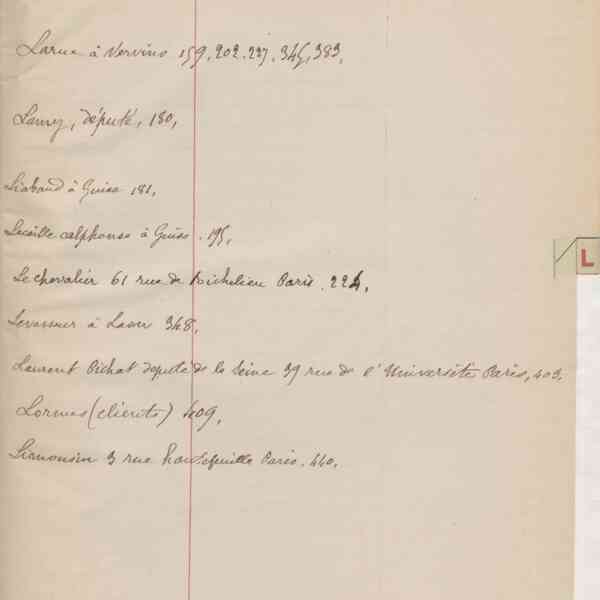 Larue à Vervins 159, 202, 227, 345, 383,
Lamy, député, 180,
Liabaud à Guise 181,
Lecoille alphonse à Guise . 195,
Le chevalier 61 rue de Richelieu Paris . 224,
Levasseur à Laon 348,
Laurent Pichat député de la Seine 39 rue de l'Université Paris, 403,
Lormes (clients) 409,
Limousin 3 rue hautefeuille Paris. 440,
L